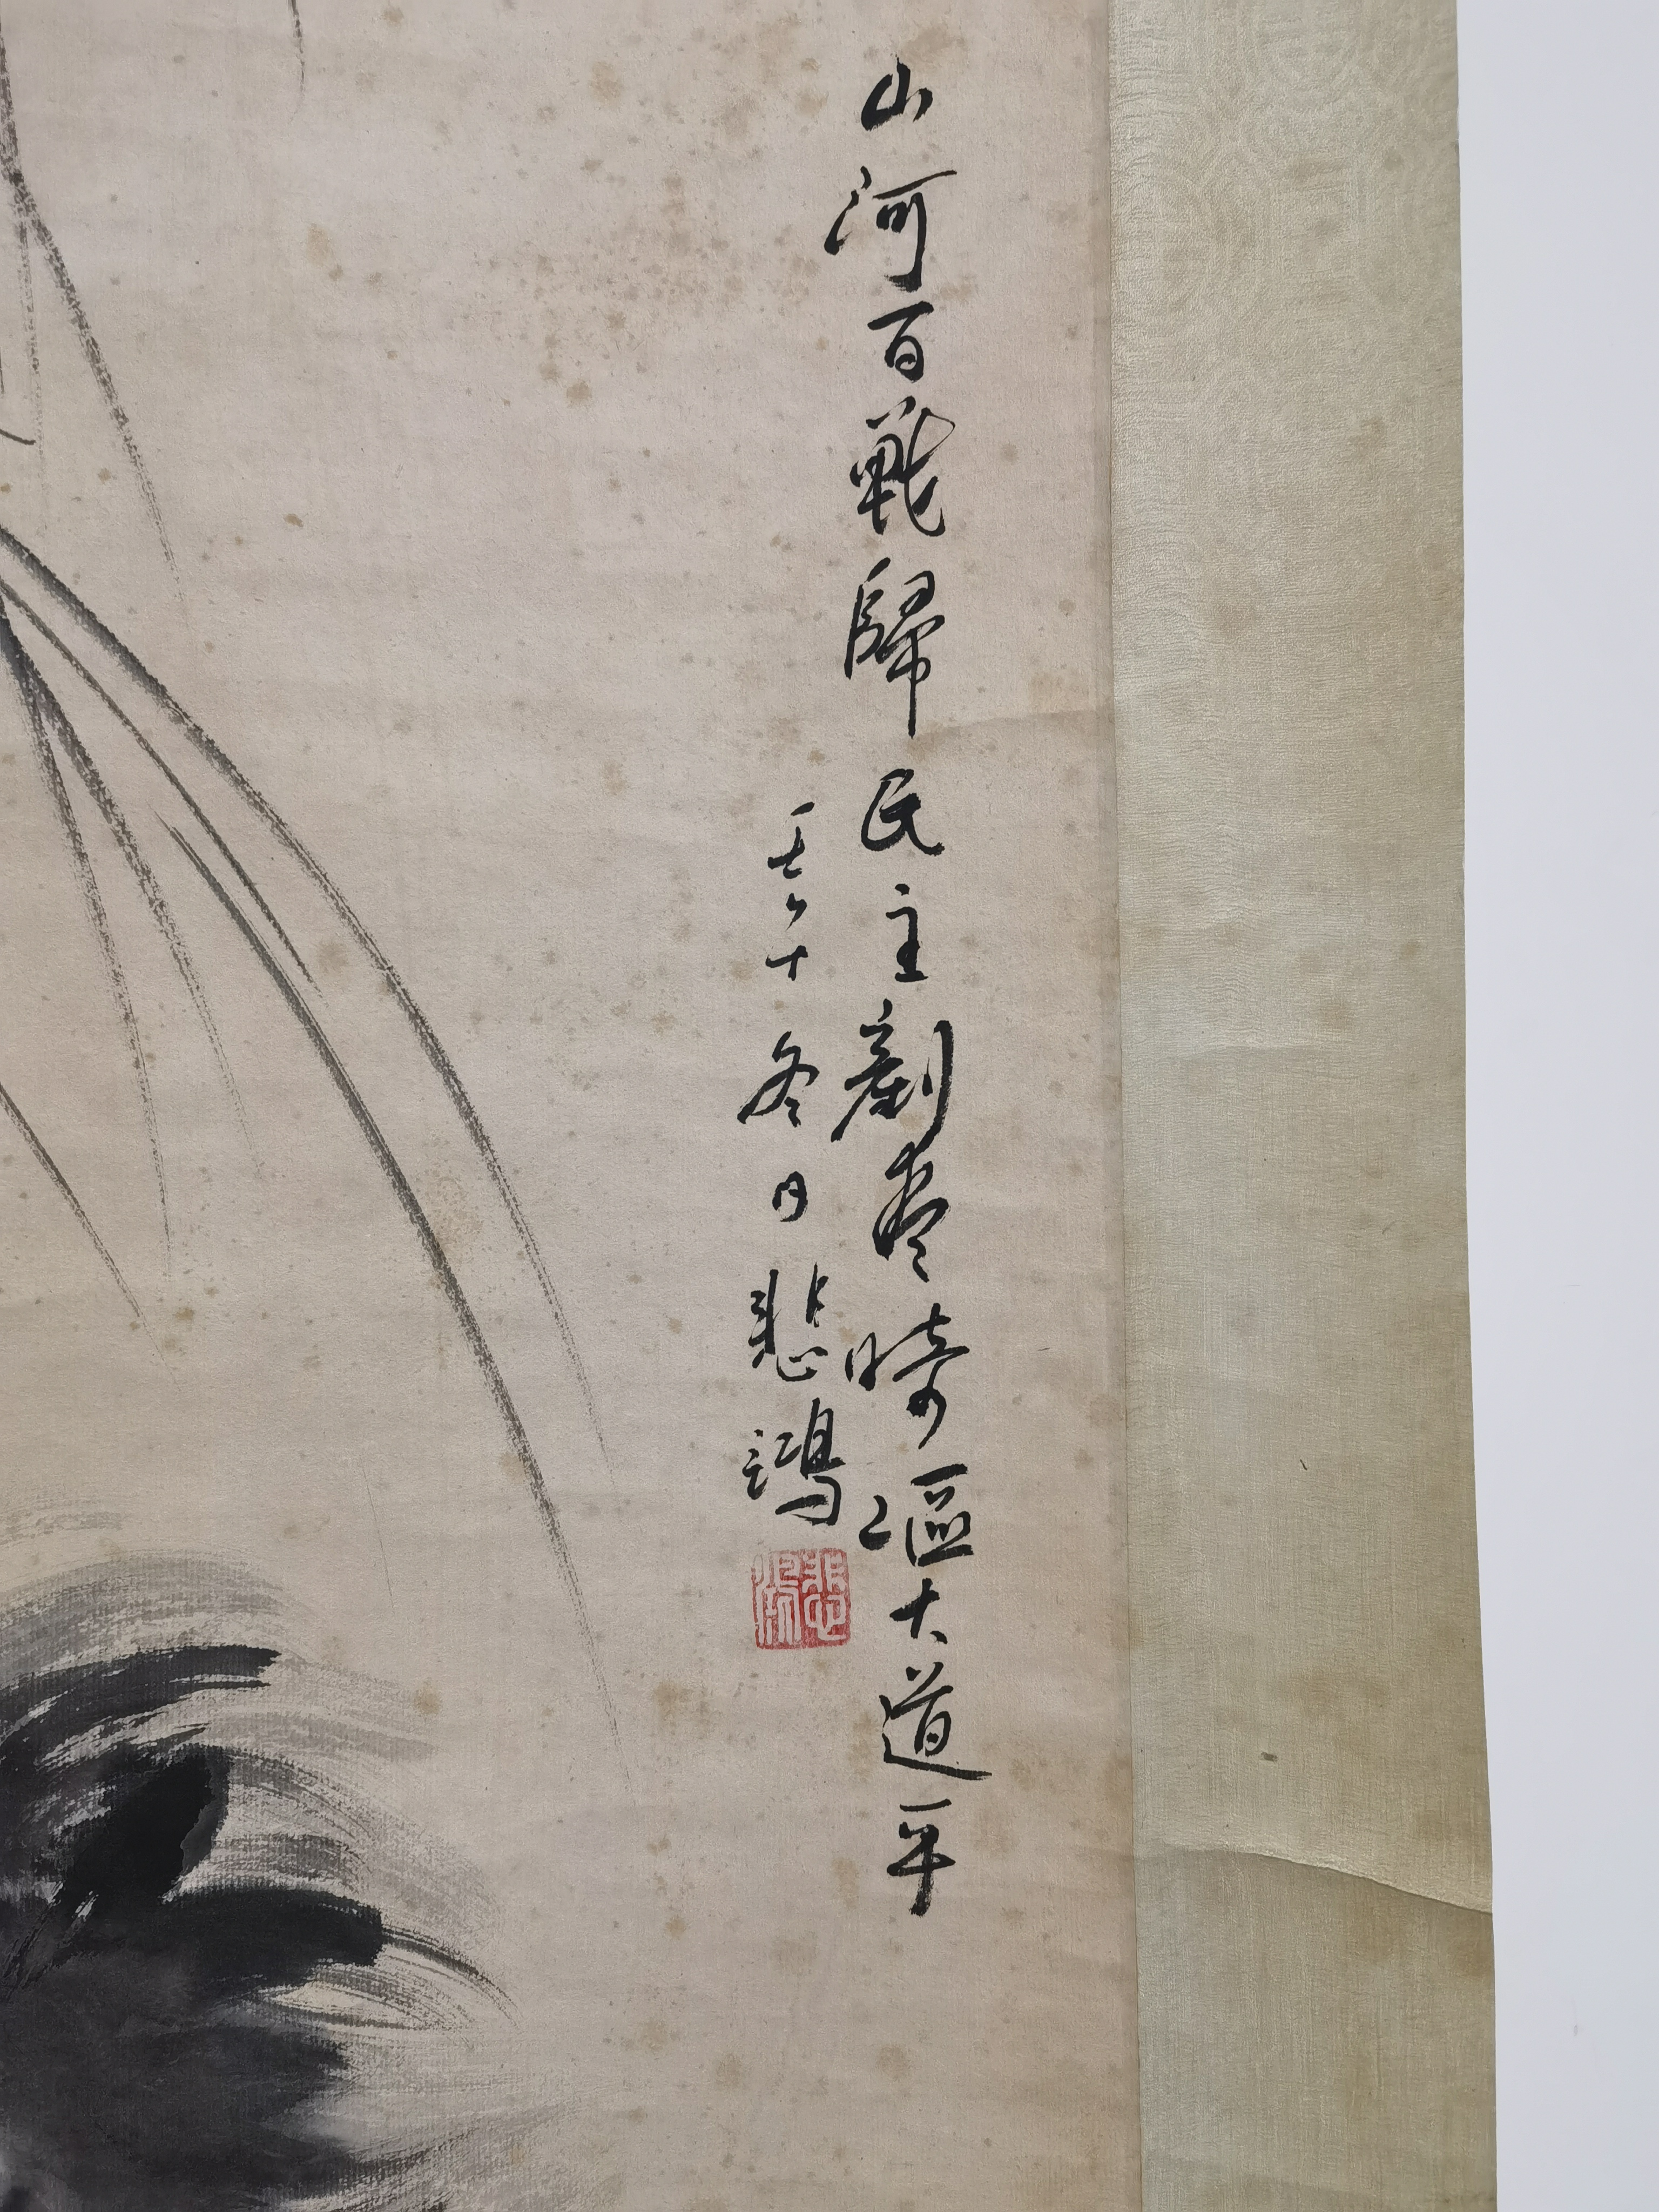 山河百戰歸民主剷盡崎嶇大道平
壬午冬日悲鴻